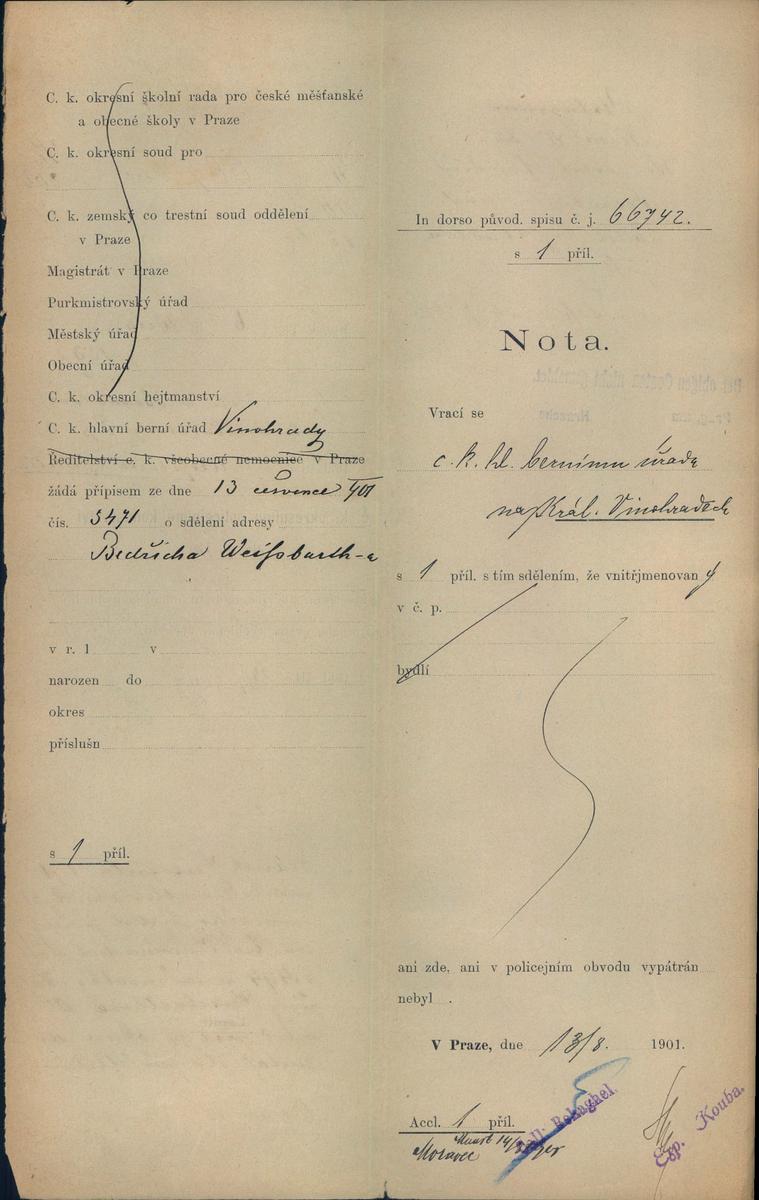 C. k. okresní školní rada pro české měšťanské
a obecné školy v Praze
C. k. okresní soud pro
C. k. zemský co trestní soud oddělení
v Praze
Magistrát v Praze
Purkmistrovský úřad
Městský úřad
Obecní úřad
C. k. okresní hejtmanství
C. k. hlavní berní úřad Vinohrady
Ředitelství c. k. všeobecné nemocnice v Praze
žádá přípisem ze dne 13 července 901
čís. 5471 o sdělení adresy
Bedřicha Weissbarth-a
v r. 1 v
narozen do
okres
příslušn
s 1 příl.
In dorso původ. spisu č. j. 66742.
s 1 příl.
Nota.
Vrací se
c. k. hl. bernímu úřadu
na Král. Vinohradech
s 1 příl. s tím sdělením, že vnitřjmenovan ý
v č. p.
bydlí
ani zde, ani v policejním obvodu vypátrán
nebyl .
V Praze, dne 13/8. 1901.
Accl. 1 příl.
Moravec
Coll: Rehaghel.
Exp. Kouba.